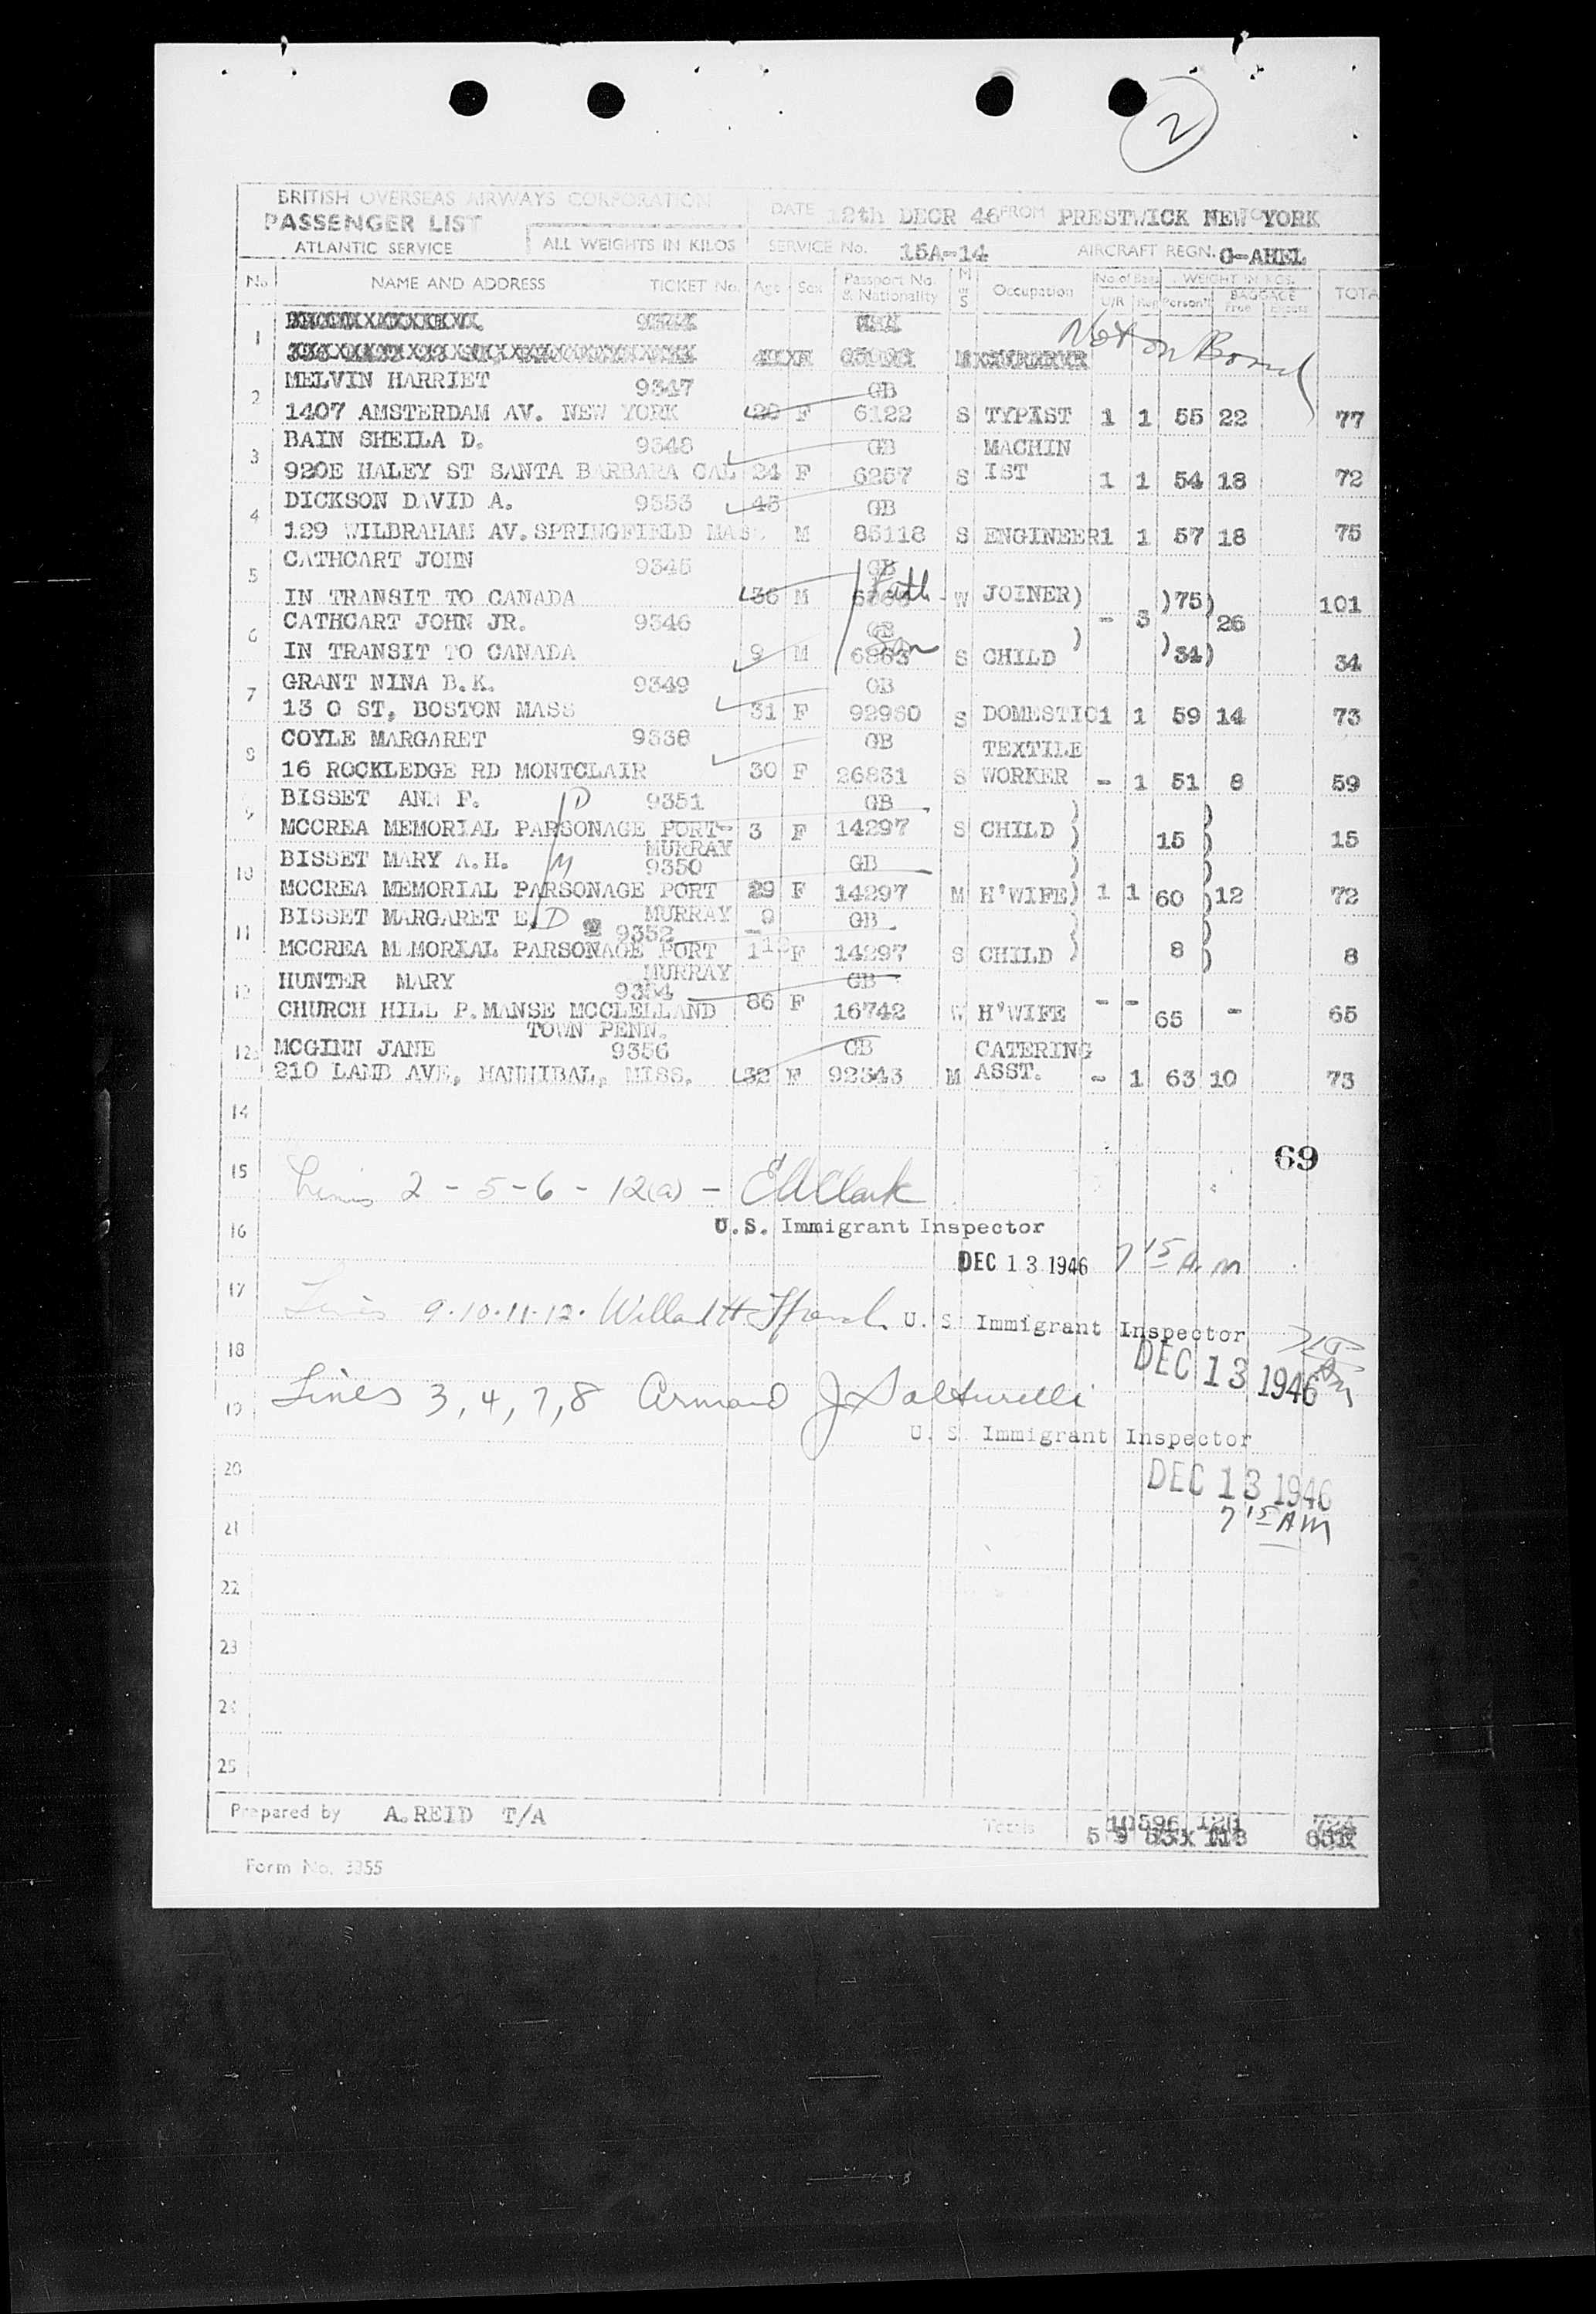 2
BRITISH OVERSEAS AIRWAYS CORPORATION
PASSENGER LIST
ATLANTIC SERVICE
ALL WEIGHTS IN KILOS
DATE 12th DECR 46 FROM PRESTWICK NEW YORK
SERVICE No. 15A-14 AIRCRAFT REGN. G-AHEL
No. NAME AND ADDRESS TICKET No. Age Sex Passport No. & Nationality M or S Occupation No of Bags U/R Reg WEIGHT IN KGS. Person'l BAGGAGE Free Excess TOTA
1 Not on Board
2 MELVIN HARRIET 9347 GB
1407 AMSTERDAM AV. NEW YORK F 6122 S TYPIST 1 1 55 22 77
3 BAIN SHEILA D. 9348 GB MACHIN
920E HALEY ST SANTA BARBARA CAL 24 F 6257 S IST 1 1 54 18 72
4 DICKSON DAVID A. 9353 45 GB
129 WILBRAHAM AV. SPRINGFIELD MASS. M 85118 S ENGINEER 1 1 57 18 75
5 CATHCART JOHN 9345 GB
IN TRANSIT TO CANADA 36 M Fath W JOINER) - 3 )75) 26 101
6 CATHCART JOHN JR. 9346 GB
IN TRANSIT TO CANADA 9 M 6863 Son S CHILD ) )34) 34
7 GRANT NINA B.K. 9349 GB
13 O ST, BOSTON MASS 31 F 92960 S DOMESTIC 1 1 59 14 73
8 COYLE MARGARET 9338 GB TEXTILE
16 ROCKLEDGE RD MONTCLAIR 30 F 26831 S WORKER - 1 51 8 59
9 BISSET ANN F. D 9351 GB
MCCREA MEMORIAL PARSONAGE PORT- 3 F 14297 S CHILD ) 15 ) 15
MURRAY
10 BISSET MARY A.H. M 9350 GB
MCCREA MEMORIAL PARSONAGE PORT 29 F 14297 M H'WIFE) 1 1 60 )12 72
MURRAY
11 BISSET MARGARET E. D 9352 9 GB
MCCREA MEMORIAL PARSONAGE PORT 12 F 14297 S CHILD ) 8 ) 8
MURRAY
12 HUNTER MARY 9354 GB
CHURCH HILL P. MANSE MCCLELLAND 86 F 16742 W H'WIFE - - 65 - 65
TOWN PENN.
12a MCGINN JANE 9356 GB CATERING
210 LAMB AVE, HANNIBAL, MISS. 32 F 92343 M ASST. - 1 63 10 73
14
69
15 Lines 2 - 5 - 6 - 12(a) - E A Clark
16 U.S. Immigrant Inspector
DEC 13 1946 7 15 A.M
17 Lines 9.10.11.12. Willard H U. S. Immigrant Inspector
18 DEC 13 1946
19 Lines 3, 4, 7, 8 Armand J
U. S. Immigrant Inspector
20 DEC 13 1946
21 7 15 AM
22
23
24
25
Prepared by A. REID T/A Totals
Form No. 3355